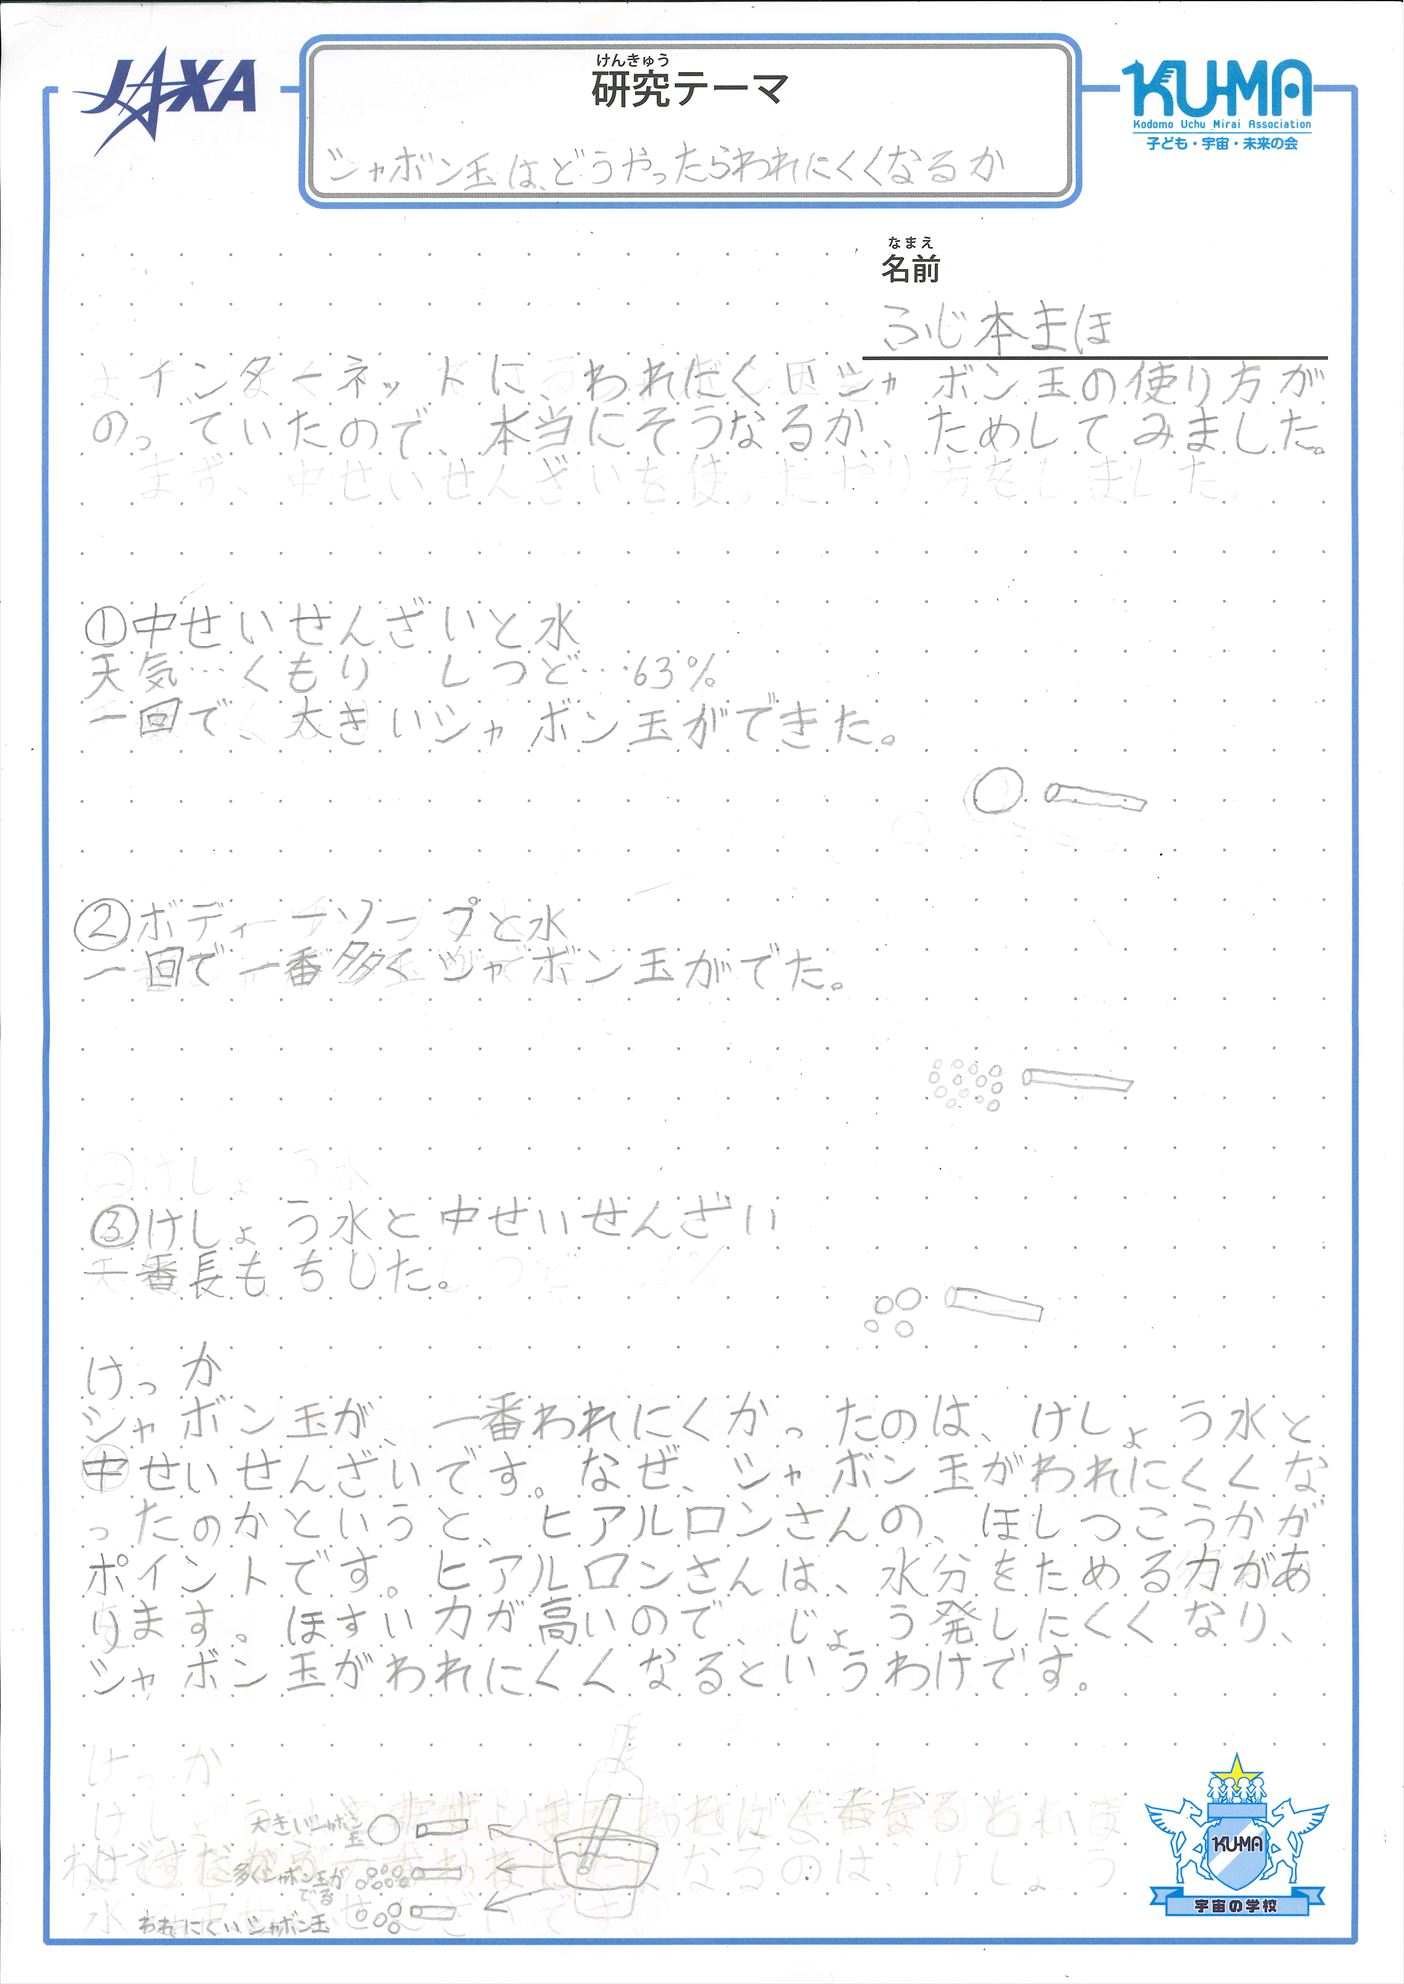 JAXA
けんきゅう
研究テーマ
KU-MA
Kodomo Uchu Mirai Association
子ども・宇宙・未来の会
シャボン玉は、どうやったらわれにくくなるか
なまえ
名前
ふじ本まほ
インターネットに、われにくいシャボン玉の使り方が
のっていたので、本当にそうなるか、ためしてみました。
まず、中せいせんざいを使ったやり方をしました。
①中せいせんざいと水
天気…くもり しつど…63%
一回で、大きいシャボン玉ができた。
②ボディーソープと水
一回で一番多くシャボン玉がでた。
③けしょう水と中せいせんざい
一番長もちした。
けっか
シャボン玉が、一番われにくかったのは、けしょう水と
中せいせんざいです。なぜ、シャボン玉がわれにくくな
ったのかというと、ヒアルロンさんの、ほしつこうかが
ポイントです。ヒアルロンさんは、水分をためる力があ
ります。ほすい力が高いので、じょう発しにくくなり、
シャボン玉がわれにくくなるというわけです。
けっか
大きいシャボン
玉
多くシャボン玉が
でる
われにくいシャボン玉
KU-MA
宇宙の学校